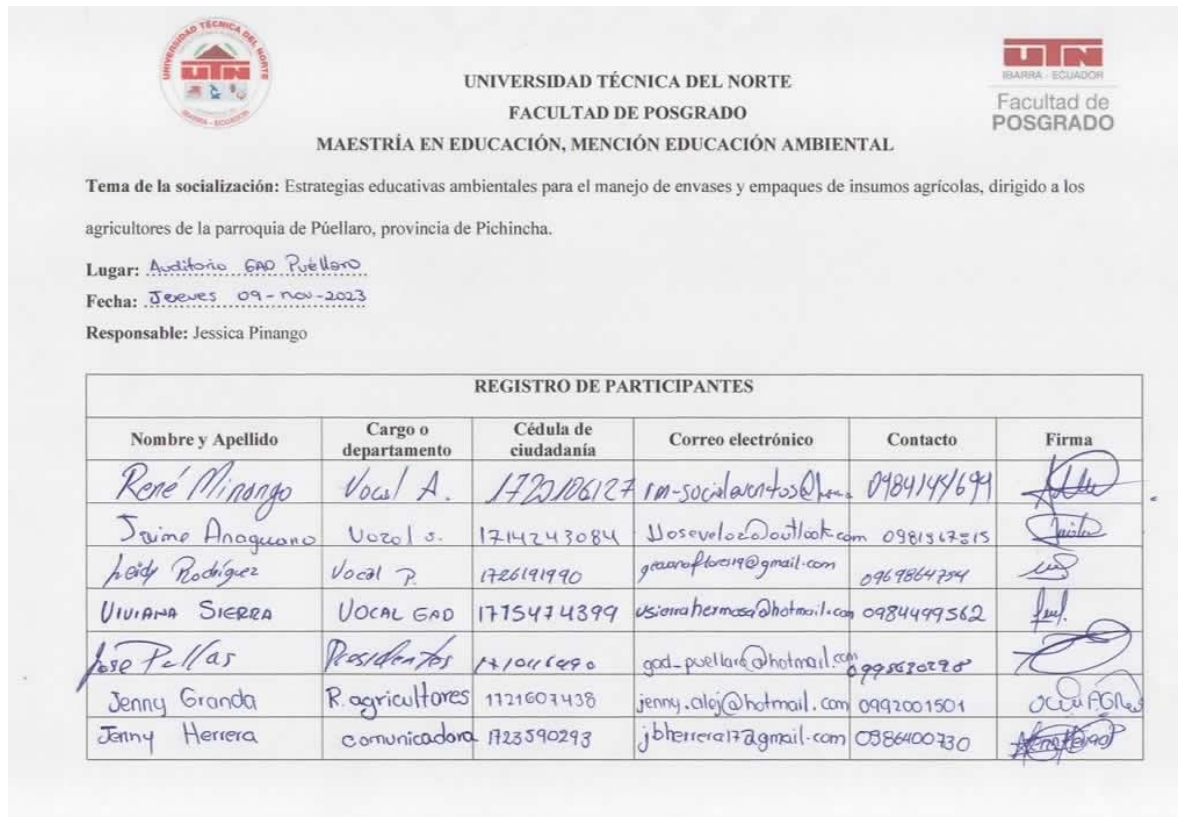 UNIVERSIDAD TÉCNICA DEL NORTE
IBARRA - ECUADOR
UTN
IBARRA - ECUADOR
Facultad de
POSGRADO
UNIVERSIDAD TÉCNICA DEL NORTE
FACULTAD DE POSGRADO
MAESTRÍA EN EDUCACIÓN, MENCIÓN EDUCACIÓN AMBIENTAL
Tema de la socialización: Estrategias educativas ambientales para el manejo de envases y empaques de insumos agrícolas, dirigido a los
agricultores de la parroquia de Púellaro, provincia de Pichincha.
Lugar: Auditorio GAD Puéllaro
Fecha: Jueves 09-nov-2023
Responsable: Jessica Pinango
REGISTRO DE PARTICIPANTES
Nombre y Apellido Cargo o departamento Cédula de ciudadanía Correo electrónico Contacto Firma
René Minango Vocal A. 1720106127
Jaime Anaguano Vozol s. 1714243084 0981367515
Leidy Rodríguez Vocal P. 1726191990 0969864754
VIVIANA SIERRA VOCAL GAD 1715474399 vsierrahermosa@hotmail.com 0984499562
Jose Presidentes gad_puellaro@hotmail.com
Jenny Granda R. agricultores 1721607438 jenny.alej@hotmail.com 0992001501
Jenny Herrera comunicadora 1723590293 jbherrera17@gmail.com 0986400730